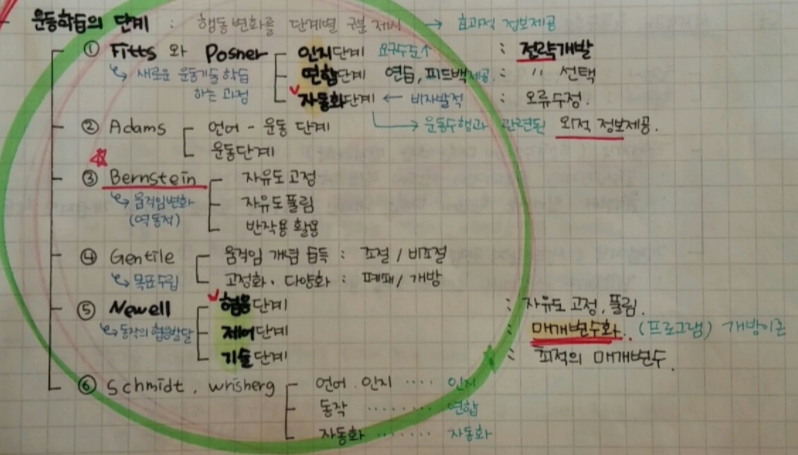 운동학습의 단계 : 행동변화를 단계별 구분 제시 → 효과적 정보제공
① Fitts 와 Posner 인지단계 요구수준↑ : 전략개발
↳ 새로운 운동기술 학습 하는 과정
연합단계 연습, 피드백제공. : 〃 선택
자동화단계 ← 비자발적 : 오류수정.
→ 운동수행과 관련된 외적 정보제공.
② Adams 언어 - 운동 단계
운동단계
③ Bernstein 자유도 고정
↳ 움직임변화 (역동적) 자유도 풀림
반작용 활용
④ Gentile 움직임 개념 습득 : 조절 / 비조절
↳ 목표수립 고정화 · 다양화 : 폐쇄 / 개방
⑤ Newell 협응단계 : 자유도 고정, 풀림.
↳ 동작의 협응발달 제어단계 : 매개변수화. (프로그램)
기술단계 : 최적의 매개변수.
⑥ Schmidt . wrisberg 언어 . 인지 ····· 인지
동작 ········ 연합
자동화 ······· 자동화